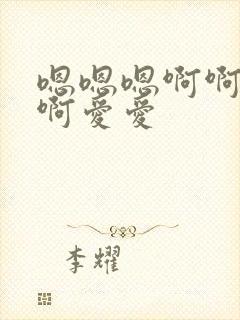 嗯嗯嗯啊啊
啊爱爱
李耀